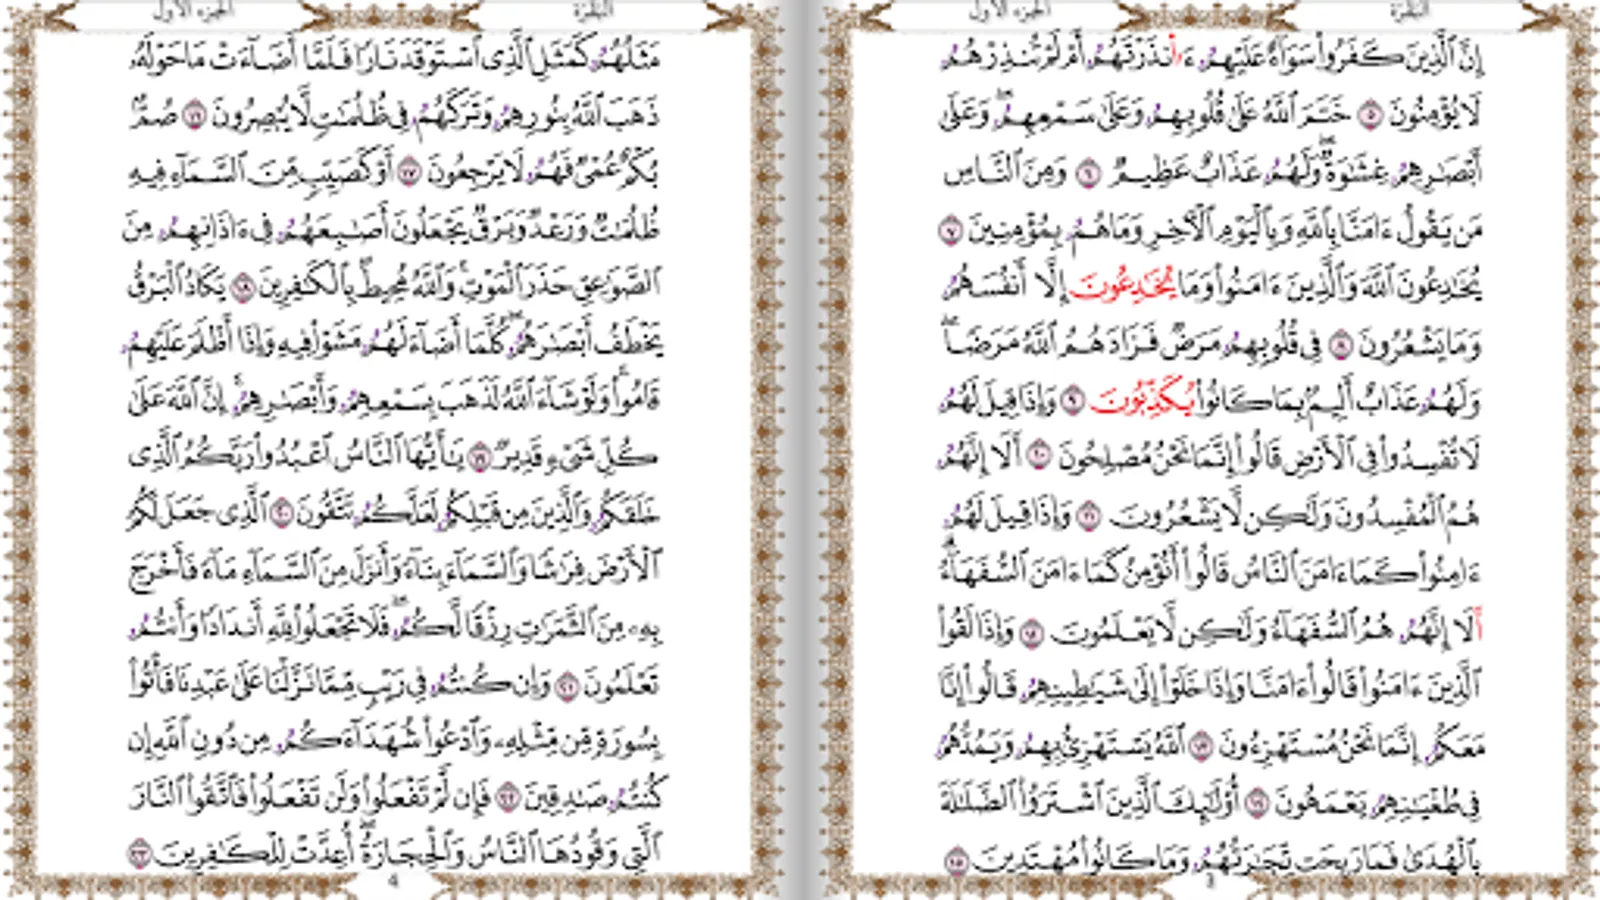 البقرة
الجزء الأول
إِنَّ ٱلَّذِينَ كَفَرُواْ سَوَآءٌ عَلَيْهِمُۥ ءَاَنذَرْتَهُمُۥ أَمْ لَمْ تُنذِرْهُمُۥ
لَا يُؤْمِنُونَ ٥ خَتَمَ ٱللَّهُ عَلَىٰ قُلُوبِهِمُۥ وَعَلَىٰ سَمْعِهِمُۥۖ وَعَلَىٰ
أَبْصَـٰرِهِمُۥ غِشَـٰوَةٌۖ وَلَهُمُۥ عَذَابٌ عَظِيمٌ ٦ وَمِنَ ٱلنَّاسِ
مَن يَقُولُ ءَامَنَّا بِٱللَّهِ وَبِٱلْيَوْمِ ٱلْآخِرِ وَمَا هُمُۥ بِمُؤْمِنِينَ ٧
يُخَـٰدِعُونَ ٱللَّهَ وَٱلَّذِينَ ءَامَنُواْ وَمَا يُخَـٰدِعُونَ إِلَّا أَنفُسَهُمُۥ
وَمَا يَشْعُرُونَ ٨ فِى قُلُوبِهِمُۥ مَرَضٌ فَزَادَهُمُ ٱللَّهُ مَرَضًاۖ
وَلَهُمُۥ عَذَابٌ أَلِيمٌۢ بِمَا كَانُواْ يُكَذِّبُونَ ٩ وَإِذَا قِيلَ لَهُمُۥ
لَا تُفْسِدُواْ فِى ٱلْأَرْضِ قَالُواْ إِنَّمَا نَحْنُ مُصْلِحُونَ ١٠ أَلَا إِنَّهُمُۥ
هُمُ ٱلْمُفْسِدُونَ وَلَـٰكِن لَّا يَشْعُرُونَ ١١ وَإِذَا قِيلَ لَهُمُۥ
ءَامِنُواْ كَمَا ءَامَنَ ٱلنَّاسُ قَالُواْ أَنُؤْمِنُ كَمَا ءَامَنَ ٱلسُّفَهَآءُۗ
أَلَا إِنَّهُمُۥ هُمُ ٱلسُّفَهَآءُ وَلَـٰكِن لَّا يَعْلَمُونَ ١٢ وَإِذَا لَقُواْ
ٱلَّذِينَ ءَامَنُواْ قَالُواْ ءَامَنَّا وَإِذَا خَلَوْاْ إِلَىٰ شَيَـٰطِينِهِمُۥ قَالُواْ إِنَّا
مَعَكُمُۥ إِنَّمَا نَحْنُ مُسْتَهْزِءُونَ ١٣ ٱللَّهُ يَسْتَهْزِئُ بِهِمُۥ وَيَمُدُّهُمُۥ
فِى طُغْيَـٰنِهِمُۥ يَعْمَهُونَ ١٤ أُوْلَـٰٓئِكَ ٱلَّذِينَ ٱشْتَرَوُاْ ٱلضَّلَـٰلَةَ
بِٱلْهُدَىٰ فَمَا رَبِحَت تِّجَـٰرَتُهُمُۥ وَمَا كَانُواْ مُهْتَدِينَ ١٥
3
البقرة
الجزء الأول
مَثَلُهُمُۥ كَمَثَلِ ٱلَّذِى ٱسْتَوْقَدَ نَارًا فَلَمَّا أَضَآءَتْ مَا حَوْلَهُۥ
ذَهَبَ ٱللَّهُ بِنُورِهِمُۥ وَتَرَكَهُمُۥ فِى ظُلُمَـٰتٍ لَّا يُبْصِرُونَ ١٦ صُمٌّۢ
بُكْمٌ عُمْىٌ فَهُمُۥ لَا يَرْجِعُونَ ١٧ أَوْ كَصَيِّبٍ مِّنَ ٱلسَّمَآءِ فِيهِ
ظُلُمَـٰتٌ وَرَعْدٌ وَبَرْقٌ يَجْعَلُونَ أَصَـٰبِعَهُمُۥ فِى ءَاذَانِهِمُۥ مِنَ
ٱلصَّوَٰعِقِ حَذَرَ ٱلْمَوْتِۚ وَٱللَّهُ مُحِيطٌۢ بِٱلْكَـٰفِرِينَ ١٨ يَكَادُ ٱلْبَرْقُ
يَخْطَفُ أَبْصَـٰرَهُمُۥۖ كُلَّمَا أَضَآءَ لَهُمُۥ مَشَوْاْ فِيهِ وَإِذَا أَظْلَمَ عَلَيْهِمُۥ
قَامُواْۚ وَلَوْ شَآءَ ٱللَّهُ لَذَهَبَ بِسَمْعِهِمُۥ وَأَبْصَـٰرِهِمُۥۚ إِنَّ ٱللَّهَ عَلَىٰ
كُلِّ شَىْءٍ قَدِيرٌ ١٩ يَـٰأَيُّهَا ٱلنَّاسُ ٱعْبُدُواْ رَبَّكُمُ ٱلَّذِى
خَلَقَكُمُۥ وَٱلَّذِينَ مِن قَبْلِكُمُۥ لَعَلَّكُمُۥ تَتَّقُونَ ٢٠ ٱلَّذِى جَعَلَ لَكُمُ
ٱلْأَرْضَ فِرَٰشًا وَٱلسَّمَآءَ بِنَآءً وَأَنزَلَ مِنَ ٱلسَّمَآءِ مَآءً فَأَخْرَجَ
بِهِۦ مِنَ ٱلثَّمَرَٰتِ رِزْقًا لَّكُمُۥۖ فَلَا تَجْعَلُواْ لِلَّهِ أَندَادًا وَأَنتُمُۥ
تَعْلَمُونَ ٢١ وَإِن كُنتُمُۥ فِى رَيْبٍ مِّمَّا نَزَّلْنَا عَلَىٰ عَبْدِنَا فَأْتُواْ
بِسُورَةٍ مِّن مِّثْلِهِۦ وَٱدْعُواْ شُهَدَآءَكُمُۥ مِن دُونِ ٱللَّهِ إِن
كُنتُمُۥ صَـٰدِقِينَ ٢٢ فَإِن لَّمْ تَفْعَلُواْ وَلَن تَفْعَلُواْ فَٱتَّقُواْ ٱلنَّارَ
ٱلَّتِى وَقُودُهَا ٱلنَّاسُ وَٱلْحِجَارَةُۖ أُعِدَّتْ لِلْكَـٰفِرِينَ ٢٣
4